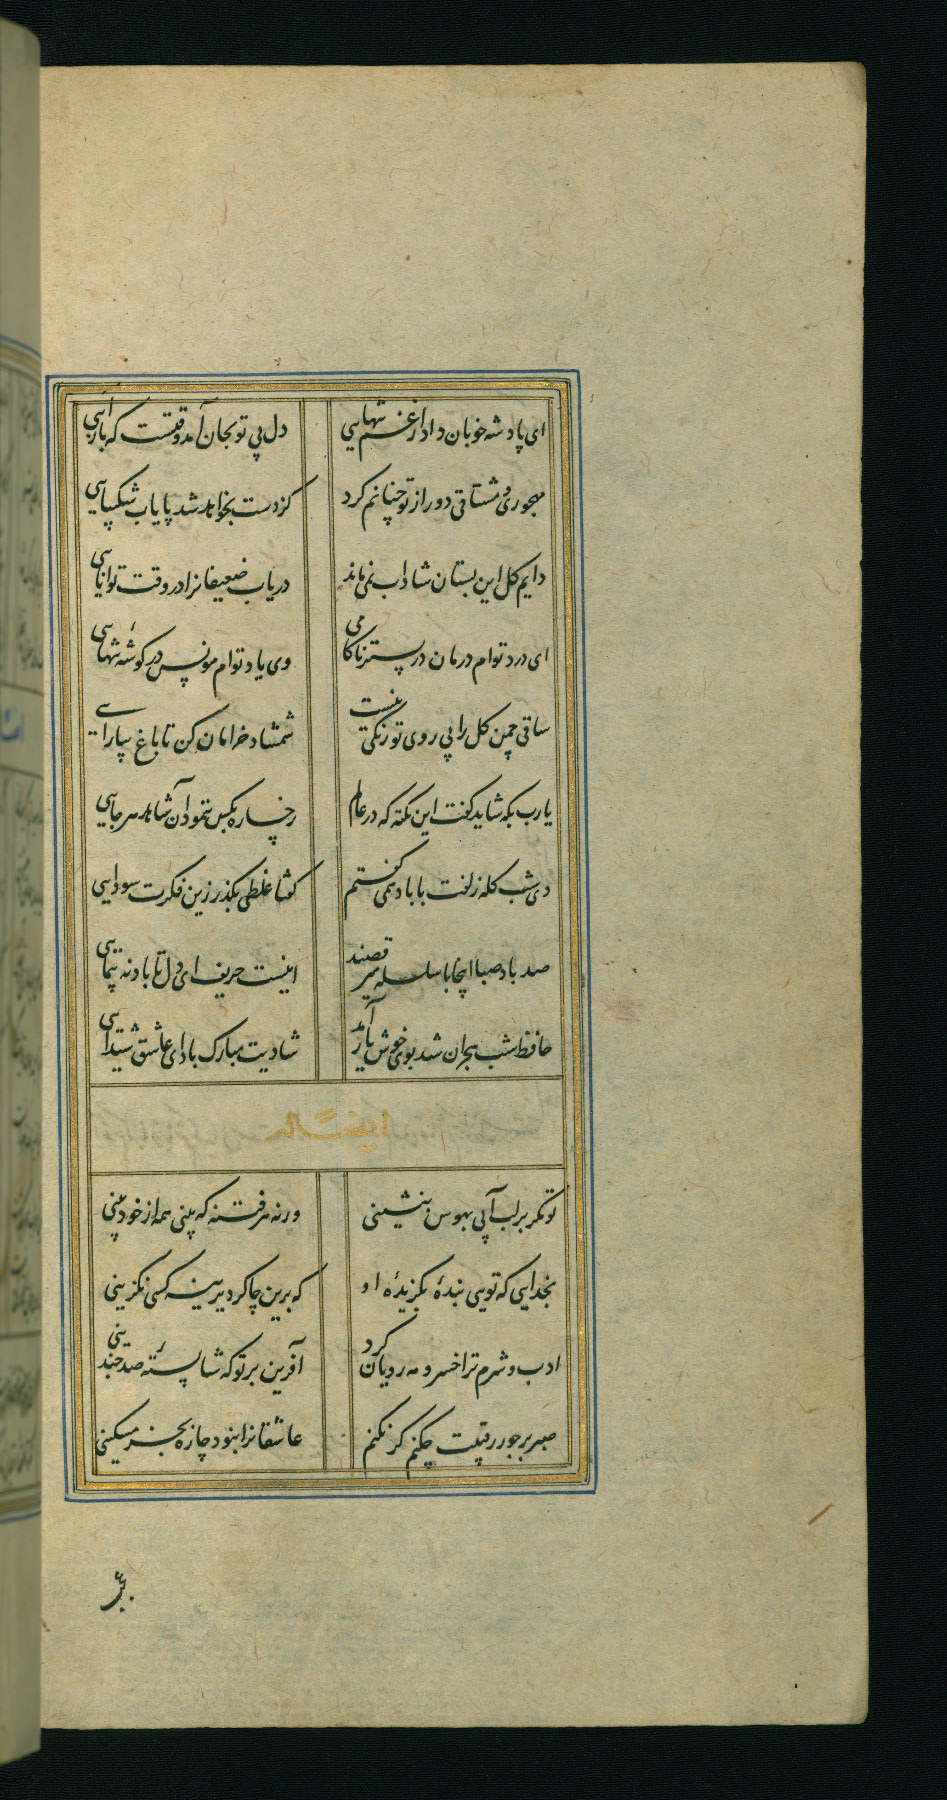 ای پادشه خوبان داد از غم تنهایی
دل بی تو بجان آمد وقتست که بازآیی
مهجوری و مشتاقی دور از تو چنانم کرد
کز دست بخواهد شد پایاب شکیبایی
دایم گل این بستان شاداب نمی ماند
دریاب ضعیفانرا در وقت توانایی
ای درد توام درمان در بستر ناکامی
وی یاد توام مونس در گوشهٔ تنهایی
ساقی چمن گل را بی روی تو رنگی نیست
شمشاد خرامان کن تا باغ بیارایی
یارب بکه شاید گفت این نکته که در عالم
رخساره بکس ننمود آن شاهد هرجایی
دی شب گله زلفت با باد همی گفتم
گفتا غلطی بگذر زین فکرت سودایی
صد باد صبا اینجا با سلسله میرقصند
اینست حریف ای دل تا باد نپیمایی
حافظ شب هجران شد بوی خوش یار آمد
شادیت مبارک باد ای عاشق شیدایی
ایضا له
تو مگر بر لب آبی بهوس بنشینی
ورنه هر فتنه که بینی همه از خود بینی
بخدایی که تویی بندهٔ بگزیدهٔ او
که برین چاکر دیرینه کسی نگزینی
ادب و شرم ترا خسرو مه رویان کرد
آفرین بر تو که شایستهٔ صد چندینی
صبر بر جور رقیبت چکنم گر نکنم
عاشقانرا نبود چاره بجز مسکینی